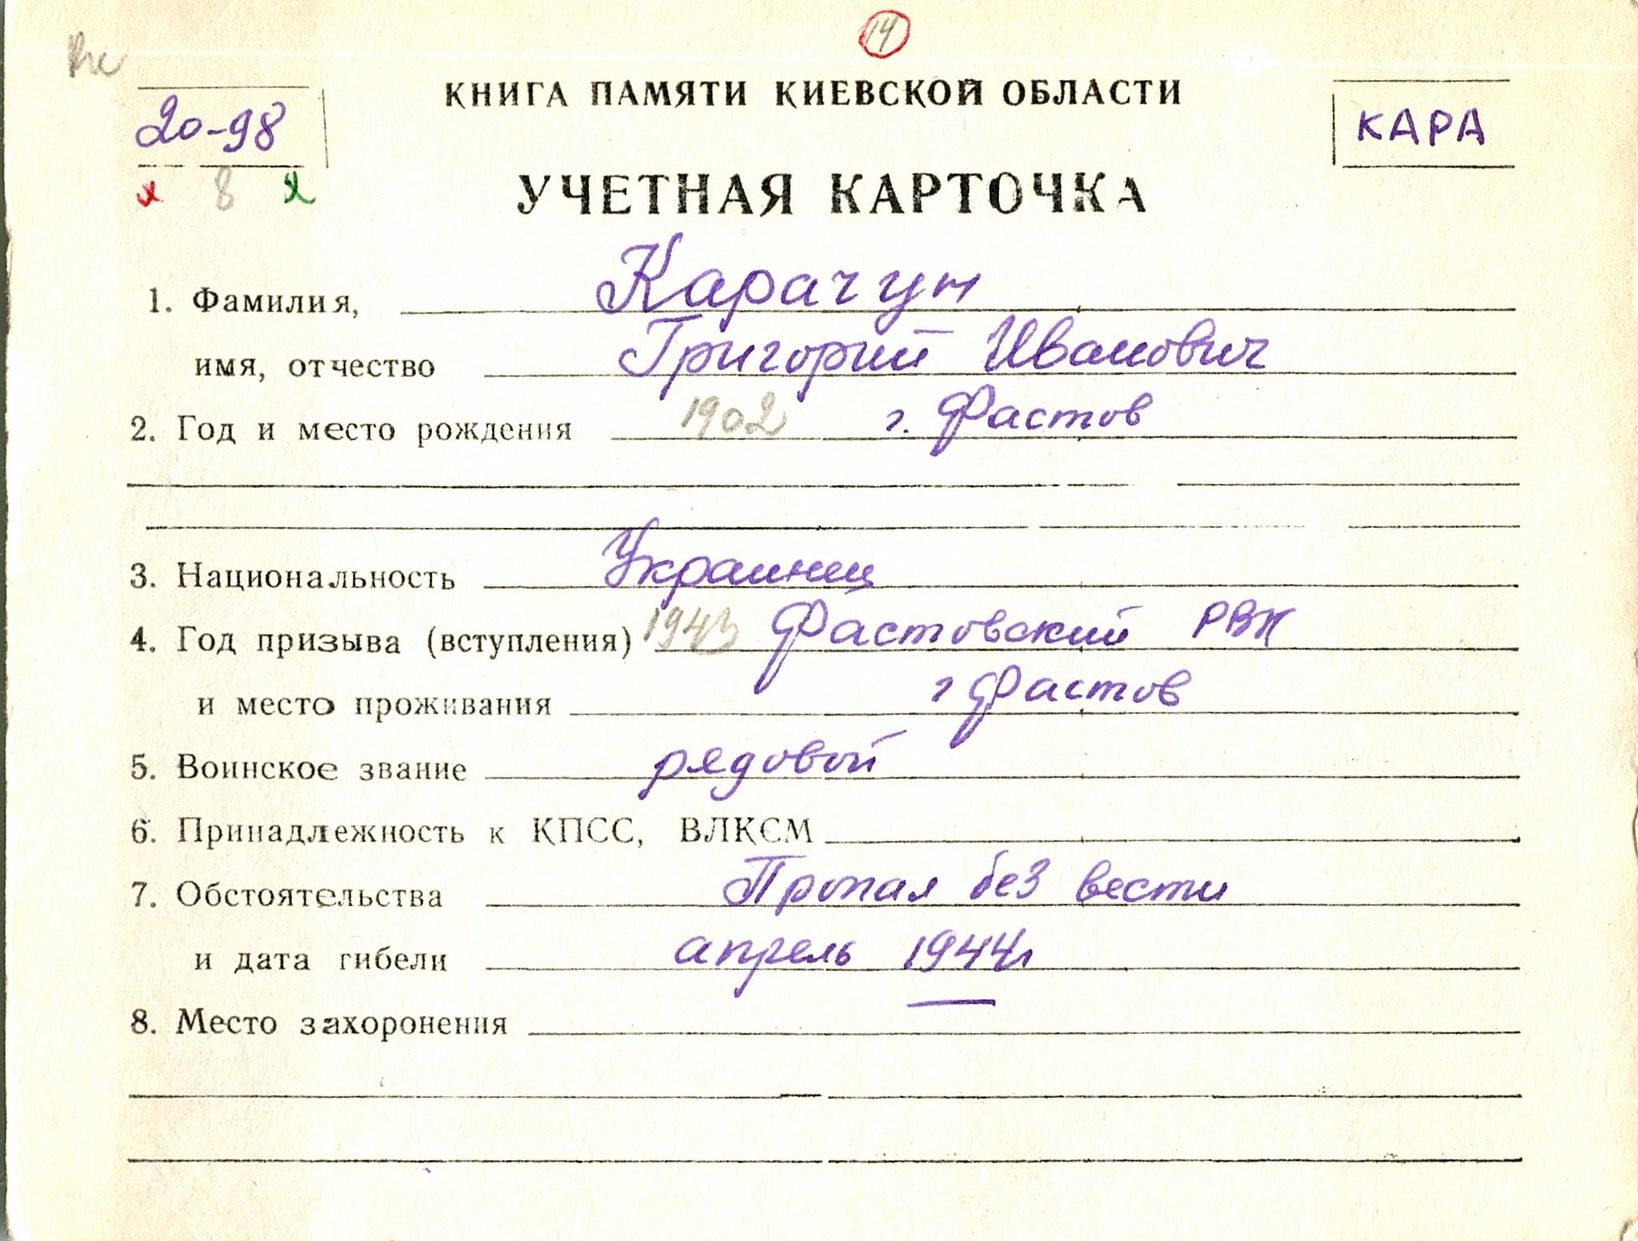 14
КНИГА ПАМЯТИ КИЕВСКОЙ ОБЛАСТИ
20-98
КАРА
8
УЧЕТНАЯ КАРТОЧКА
1. Фамилия, Карачун
имя, отчество Григорий Иванович
2. Год и место рождения 1902 г. Фастов
3. Национальность Украинец
4. Год призыва (вступления) 1943 Фастовский РВК
и место проживания г Фастов
5. Воинское звание рядовой
6. Принадлежность к КПСС, ВЛКСМ
7. Обстоятельства Пропал без вести
и дата гибели апрель 1944г
8. Место захоронения